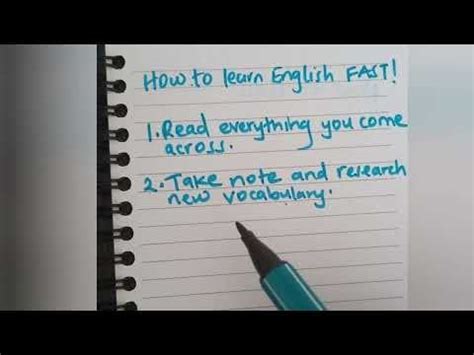 How to learn English FAST!
1. Read everything you come
across.
2. Take note and research
new vocabulary.